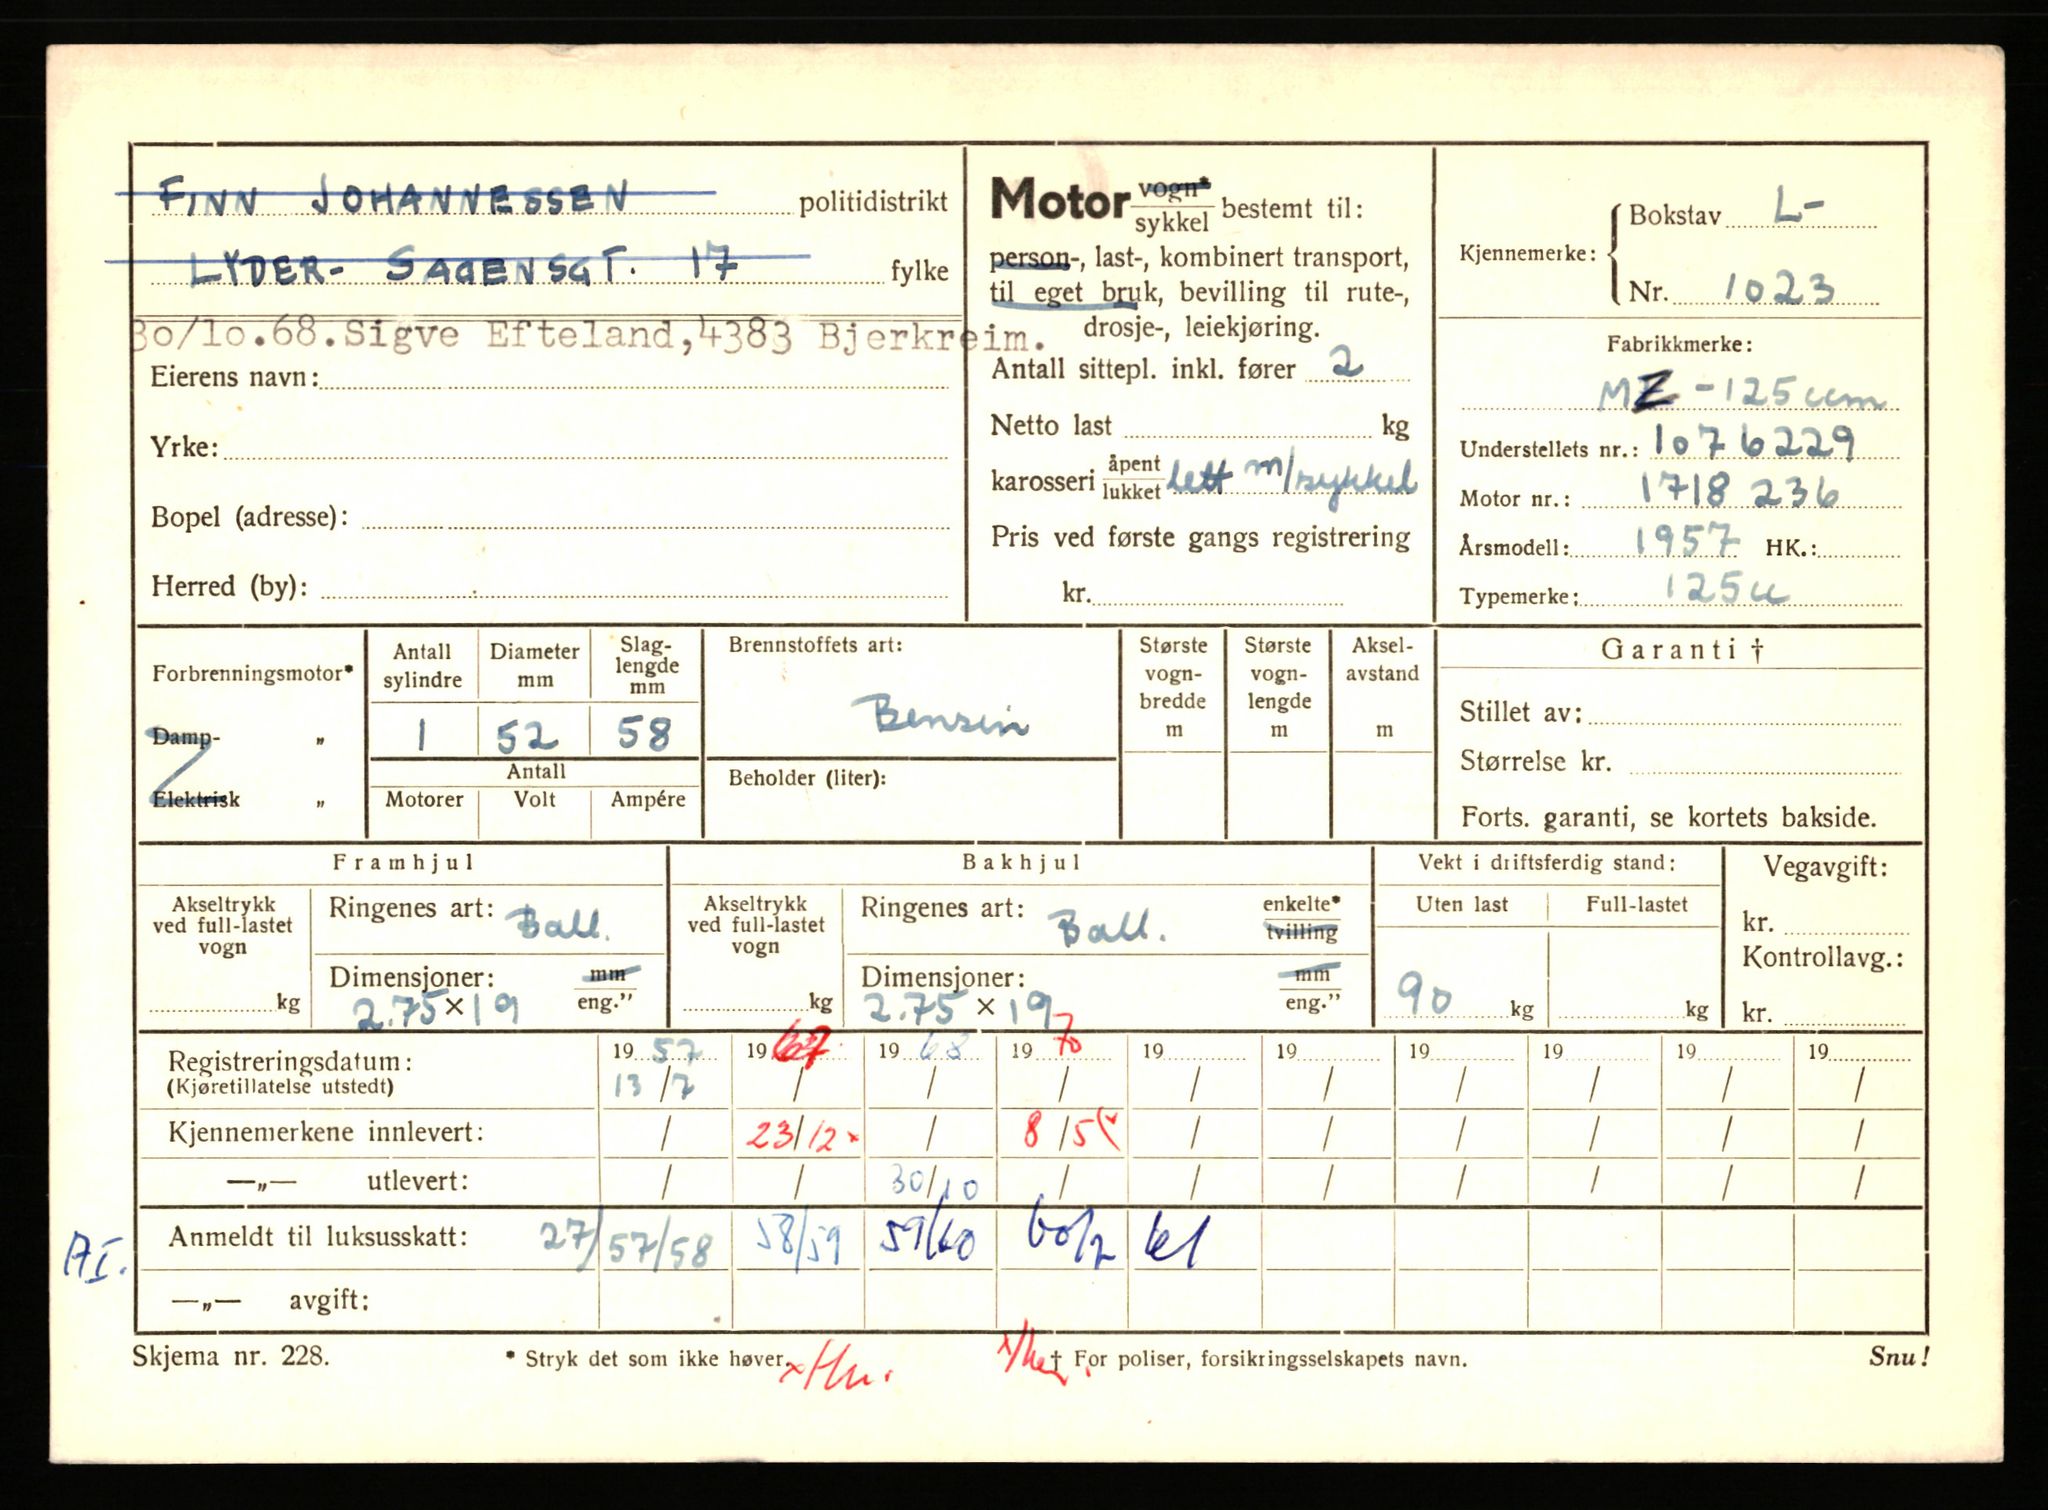 FINN JOHANNESSEN politidistrikt
LYDER- SAGENSGT. 17 fylke
30/10.68. Sigve Efteland, 4383 Bjerkreim.
Eierens navn:
Yrke:
Bopel (adresse):
Herred (by):
Motor vogn* / sykkel bestemt til:
person-, last-, kombinert transport,
til eget bruk, bevilling til rute-,
drosje-, leiekjøring.
Antall sittepl. inkl. fører 2
Netto last kg
karosseri åpent / lukket lett m/sykkel
Pris ved første gangs registrering
kr.
Kjennemerke: { Bokstav L-
Nr. 1023
Fabrikkmerke:
MZ - 125 ccm
Understellets nr.: 1076229
Motor nr.: 1718 236
Årsmodell: 1957 HK.:
Typemerke: 125 cc
Forbrenningsmotor*
Damp- „
Elektrisk „
Antall sylindre
Diameter mm
Slag-lengde mm
1 52 58
Antall
Motorer Volt Ampére
Brennstoffets art:
Bensin
Beholder (liter):
Største vogn-bredde m
Største vogn-lengde m
Aksel-avstand m
Garanti †
Stillet av:
Størrelse kr.
Forts. garanti, se kortets bakside.
Framhjul
Akseltrykk ved full-lastet vogn
kg
Ringenes art: Ball.
Dimensjoner: mm / eng."
2.75 × 19
Bakhjul
Akseltrykk ved full-lastet vogn
kg
Ringenes art: Ball. enkelte* / tvilling
Dimensjoner: mm / eng."
2.75 × 19
Vekt i driftsferdig stand:
Uten last Full-lastet
90 kg kg
Vegavgift:
kr.
Kontrollavg.:
kr.
Registreringsdatum: 19 57 19 67 19 68 19 70 19 19 19 19 19 19
(Kjøretillatelse utstedt) 13/7 / / / / / / / / /
Kjennemerkene innlevert: / 23/12 x / 8/5 / / / / / /
—„— utlevert: / / 30/10 / / / / / / /
Anmeldt til luksusskatt: 27/57/58 58/59 59/60 60/2 61
AI.
—„— avgift:
Skjema nr. 228. * Stryk det som ikke høver. † For poliser, forsikringsselskapets navn. Snu!